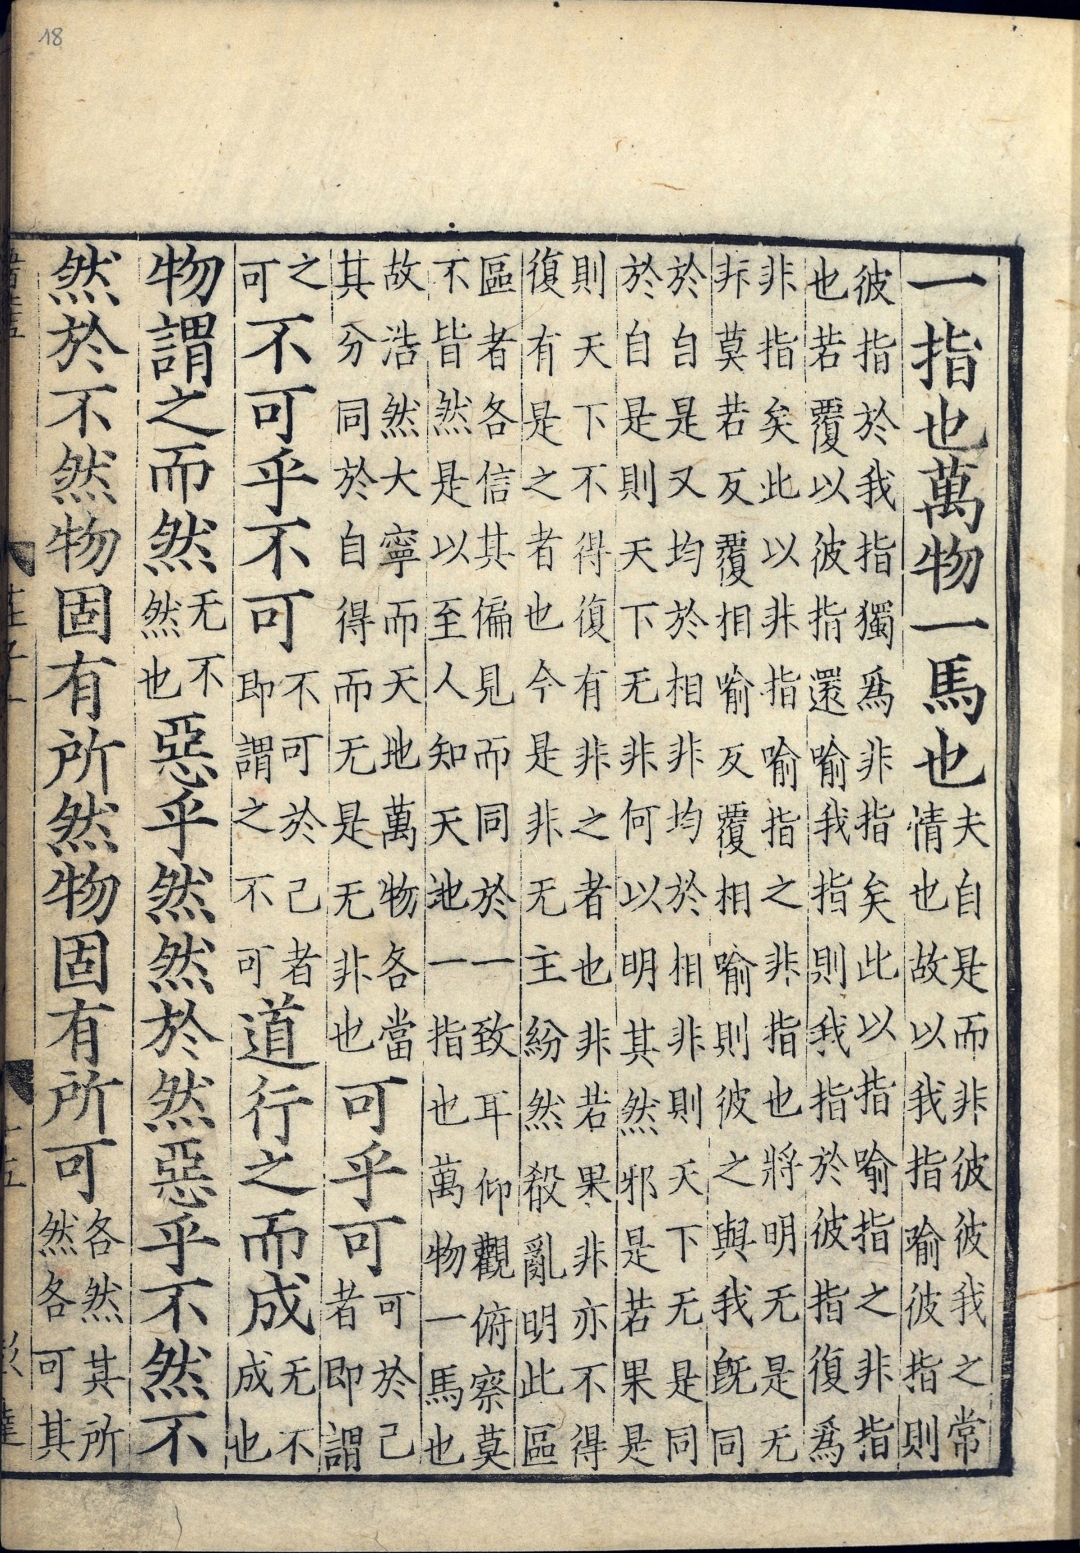 18
一指也萬物一馬也夫自是而非彼彼我之常情也故以我指喻彼指則
彼指於我指獨爲非指矣此以指喻指之非指
也若覆以彼指還喻我指則我指於彼指復爲
非指矣此以非指喻指之非指也將明无是无
非莫若反覆相喻反覆相喻則彼之與我旣同
於自是又均於相非均於相非則天下无是同
於自是則天下无非何以明其然邪是若果是
則天下不得復有非之者也非若果非亦不得
復有是之者也今是非无主紛然殽亂明此區
區者各信其偏見而同於一致耳仰觀俯察莫
不皆然是以至人知天地一指也萬物一馬也
故浩然大寧而天地萬物各當其分同於自得而无是无非也可乎可可於己者即謂
之可不可乎不可不可於己者即謂之不可道行之而成无不成也
物謂之而然无不然也惡乎然然於然惡乎不然不
然於不然物固有所然物固有所可各然其所然各可其